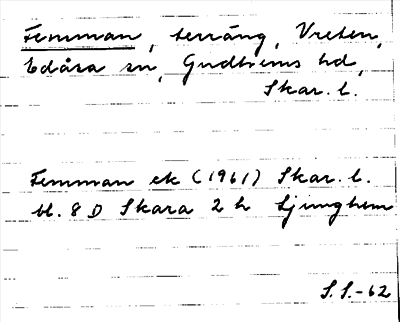 Femman, terräng, Vreten,
Edåsa sn, Gudhems hd,
Skar. l.
Femman ek (1961) Skar. l.
bl. 8 D Skara 2 h Ljunghem
S.S.-62